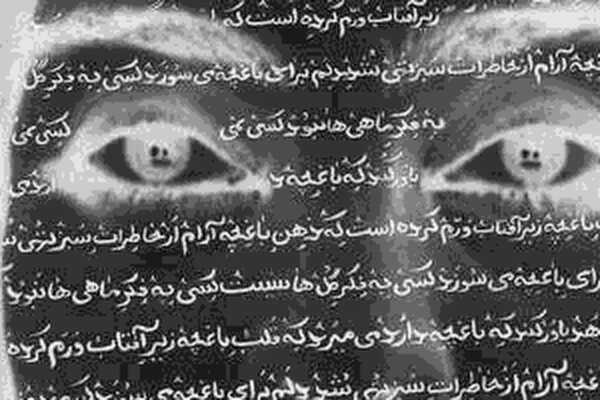 زیر آفتاب ورم کرده است که
آرام از خاطرات سبز تهی شود دلم برای باغچه می سوزد کسی به فکر گل
به فکر ماهی ها نبود کسی نمی کسی نمی
باور کند که باغچه
باغچه زیر آفتاب ورم کرده است که ذهن باغچه آرام از خاطرات سبز تهی
باغچه می سوزد کسی به فکر گل ها نیست کسی به فکر ماهی ها نبود
باور کند که باغچه دارد می میرد که قلب باغچه زیر آفتاب ورم کرده
آرام از خاطرات سبز تهی شود دلم برای باغچه می سوزد